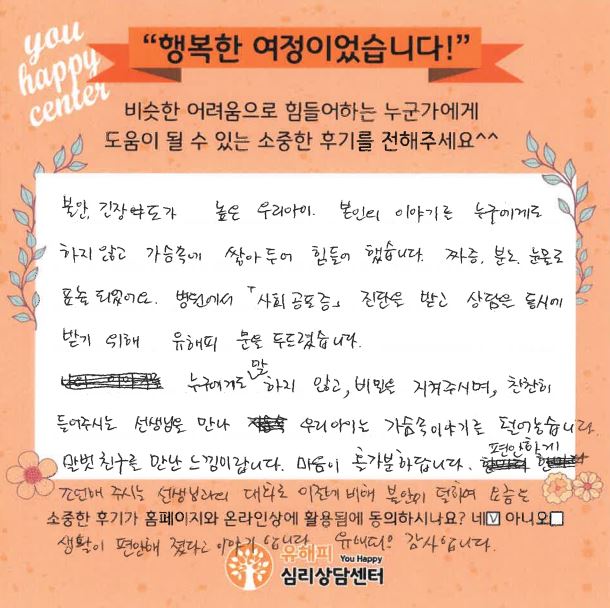 you
happy
center
“행복한 여정이었습니다!”
비슷한 어려움으로 힘들어하는 누군가에게
도움이 될 수 있는 소중한 후기를 전해주세요^^
불안, 긴장약도가 높은 우리아이. 본인의 이야기를 누구에게도
하지 않고 가슴속에 쌓아두어 힘들어 했습니다. 짜증, 분노, 눈물로
표출 되었어요. 병원에서 「사회공포증」 진단을 받고 상담을 동시에
받기 위해 유해피 문을 두드렸습니다.
누구에게도 말 하지 않고, 비밀은 지켜주시며, 찬찬히
들어주시는 선생님을 만나 우리아이는 가슴속이야기를 털어놓습니다.
말벗친구를 만난 느낌이랍니다. 마음이 홀가분하답니다. 편안하게
표현해 주시는 선생님과의 대화로 이전에 비해 불안이 덜하여 요즘은
소중한 후기가 홈페이지와 온라인상에 활용됨에 동의하시나요? 네 아니오
생활이 편안해 졌다고 이야기 합니다. 유해피 감사합니다.
유해피 You Happy
심리상담센터